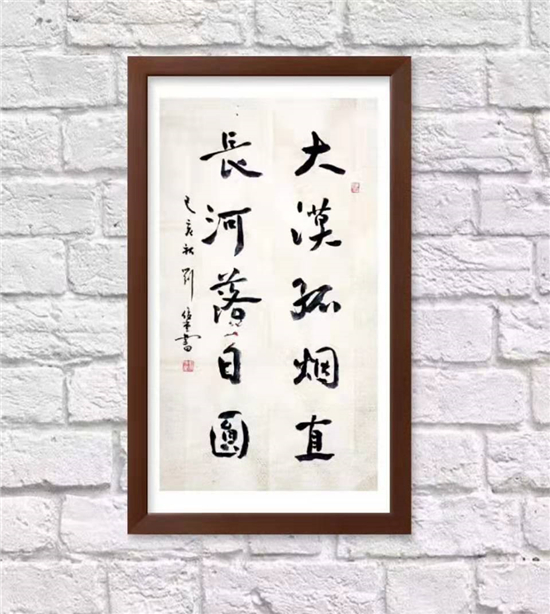 大漠孤烟直
長河落日圓
己亥秋 刘
書